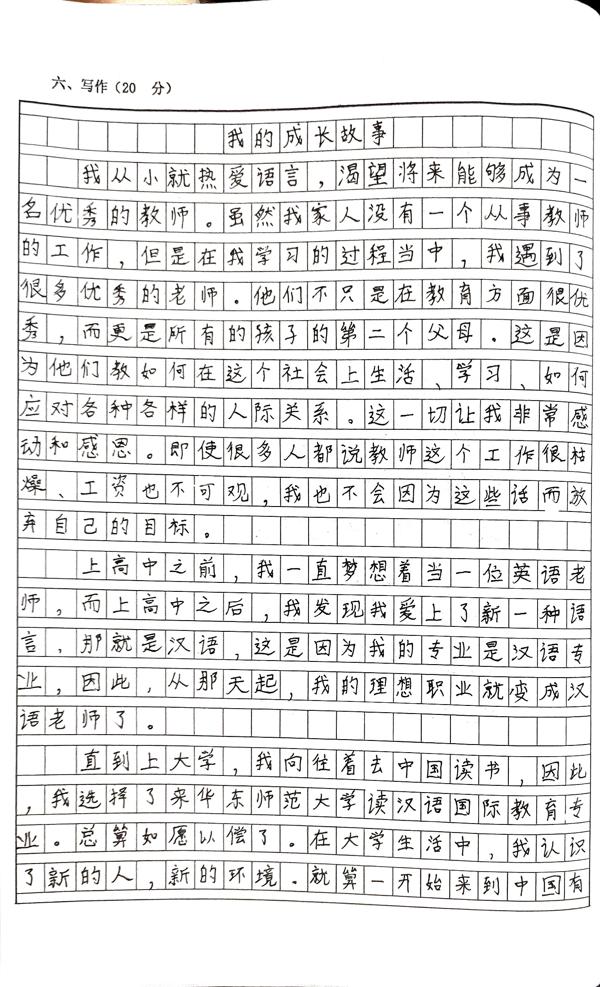 六、写作（20 分）
我的成长故事
我从小就热爱语言，渴望将来能够成为一
名优秀的教师。虽然我家人没有一个从事教师
的工作，但是在我学习的过程当中，我遇到了
很多优秀的老师。他们不只是在教育方面很优
秀，而更是所有的孩子的第二个父母。这是因
为他们教如何在这个社会上生活、学习、如何
应对各种各样的人际关系。这一切让我非常感
动和感恩。即使很多人都说教师这个工作很枯
燥、工资也不可观，我也不会因为这些话而放
弃自己的目标。
上高中之前，我一直梦想着当一位英语老
师，而上高中之后，我发现我爱上了新一种语
言，那就是汉语，这是因为我的专业是汉语专
业，因此，从那天起，我的理想职业就变成汉
语老师了。
直到上大学，我向往着去中国读书，因此
，我选择了来华东师范大学读汉语国际教育专
业。总算如愿以偿了。在大学生活中，我认识
了新的人，新的环境。就算一开始来到中国有